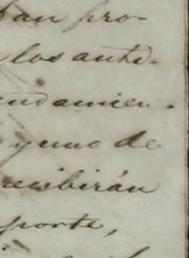 ban pro-
los ante-
endamien-
y uno de
recibirán
porte,